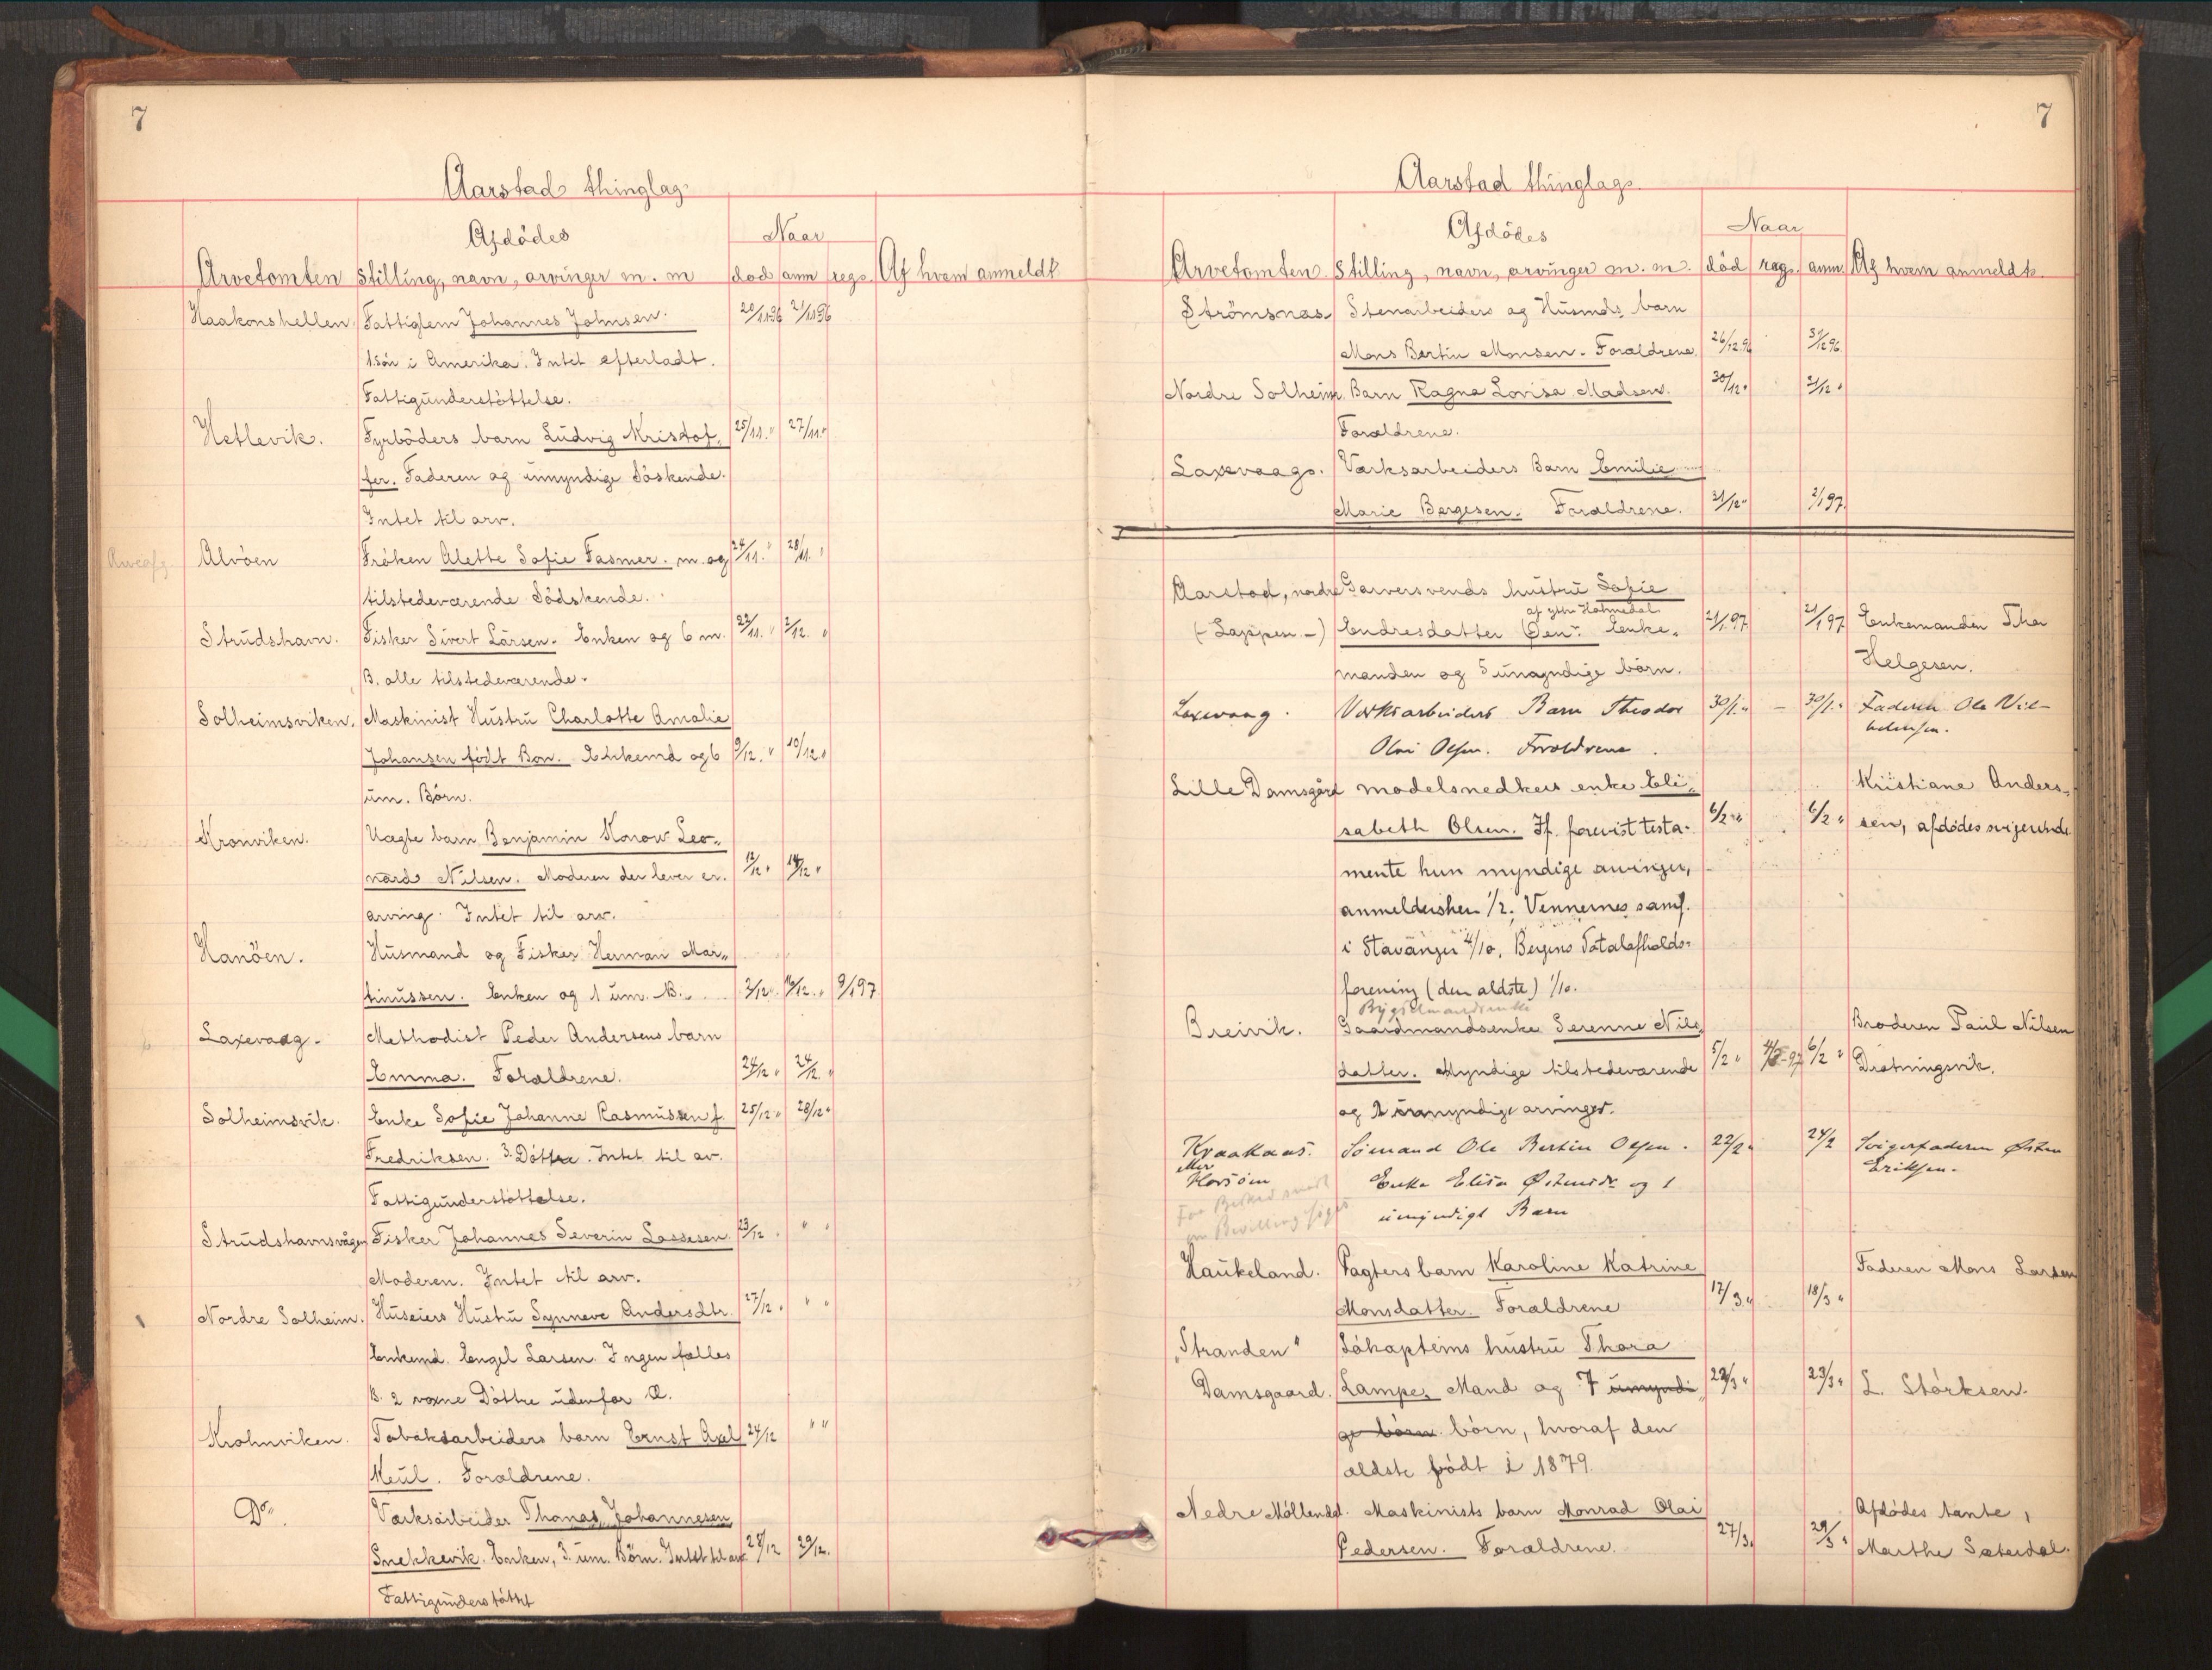 7
Aarstad thinglag
Afdödes
Naar
Arvetomten stilling, navn, arvinger m. m död anm regs. Af hvem anmeldt
Haakonshellen. Fattiglem Johannes Johnsen. 20/11.96 21/11.96
1 sön i Amerika. Intet efterladt.
Fattigunderstöttelse.
Hetlevik. Fyrböders barn Ludvig Kristof- 25/11. " 27/11. "
fer. Faderen og umyndige Söskende.
Intet til arv.
Alvöen Fröken Alette Sofie Fasmer. m. og 24/11. " 28/11. "
tilstedeværende Södskende.
Strudshavn. Fisker Sivert Larsen. Enken og 6 m. 22/11. " 2/12. "
B. alle tilstedeværende.
Solheimsviken. Maskinist Hustru Charlotte Amalie
Johansen födt Bon. Enkemd og 6 9/12. " 10/12. "
um. Börn.
Kronviken. Uægte barn Benjamin Konow Leo-
nard Nilsen. Moderen der lever er. 12/12 " 14/12 "
arving. Intet til arv.
Hanöen. Husmand og Fisker Herman Mar-
tinussen. Enken og 1 um. B. 3/12 " 16/12. " 9/1 97
Laxevaag. Methodist Peder Andersens barn
Emma. Forældrene. 24/12 " 24/12. "
Solheimsvik. Enke Sofie Johanne Rasmussen f. 25/12 " 28/12 "
Fredriksen. 3 Döttre. Intet til arv.
Fattigunderstöttelse.
Strudshavnsvågen Fisker Johannes Severin Lassesen. 23/12 " " "
Moderen. Intet til arv.
Nordre Solheim. Huseiers Hustru Synneve Andersdtr. 27/12 " " "
Enkemd. Engel Larsen. Ingen fælles
B. 2 voxne Döttre udenfor Æ.
Krohnviken. Tobaksarbeiders barn Ernst Axel 24/12 " "
Keul. Forældrene.
Do. Værksarbeider Thomas Johannesen
Snekkevik. Enken, 3 um. Börn. Intet til arv 28/12 29/12.
Fattigunderstöttet
7
Aarstad thinglag.
Afdödes
Naar
Arvetomten. Stilling, navn, arvinger m. m. död regs. anm. Af hvem anmeldt.
Strömsnas. Stenarbeiders og Husmds barn
Mons Bertin Monsen. Forældrene. 26/12.96 31/12 96.
Nordre Solheim. Barn Ragna Lovisa Madsen. 30/12 " 31/12 "
Forældrene.
Laxevaag. Værksarbeiders Barn Emilie
Marie Børgesen. Forældrene. 31/12 " 2/1 97.
Aarstad, nordre Garversvends hustru Sofie
af ytre Holmedal.
(- Lappen. -) Endresdatter Øen. Enke- 21/1.97. 21/1 97 Enkemanden Thor
manden og 5 umyndige börn. Helgesen.
Laxevaag. Værksarbeiders Barn Theodor 30/1. " - 30/1. " Faderen Ole Vil-
Olai Olsen. Forældrene. helmsen.
Lille Damsgård modelsnedkers enke Eli- Kristiane Anders-
sabeth Olsen. If. forevist testa- 6/2 " 6/2 " sen, afdödes svigerinde.
mente hun myndige arvinger,
anmeldersken 1/2. Vennernes samf.
i Stavanger 4/10, Bergens Totalafholds-
forening (den ældste) 1/10.
Bygselmandsenke
Breivik. Gaardmandsenke Serenne Nils- Broderen Paul Nilsen
datter. Myndige tilstedeværende 5/2 " 6/2 " Drotningsvik.
og 2 umyndige arvinger.
Kraakaas. Sömand Ole Bertin Olsen. 22/2 " 24/2 Svigerfaderen Østen
eller
Horsöen Enke Elisa Østensdr og 1 Eriksen.
umyndigt Barn
Haukeland. Pagters barn Karoline Katrine Faderen Mons Larsen
Monsdatter. Forældrene 17/3. " 18/3 "
"Stranden" Sökapteins hustru Thora
Damsgaard. Lampe. Mand og 7 umyndi- 22/3 " 23/3 " L. Störksen.
ge börn börn, hvoraf den
ældste födt i 1879.
Nedre Möllendal. Maskinists barn Monrad Olai Afdödes tante,
Pedersen. Forældrene. 27/3. 29/3 " Marthe Sæterdal.